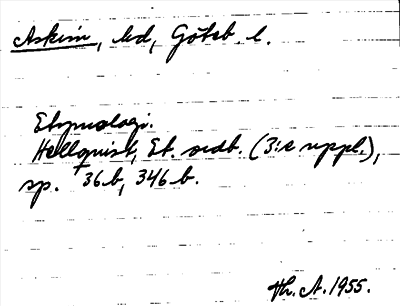 Askim, hd, Göteb. l.
Etymologi.
Hellquist, Et. ordb. (3:e uppl.),
sp. 36 b, 346 b.
Th. A. 1955.